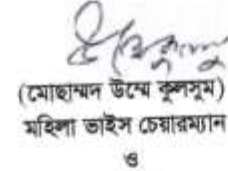 (মোছাম্মদ উম্মে কুলসুম)
মহিলা ভাইস চেয়ারম্যান
ও